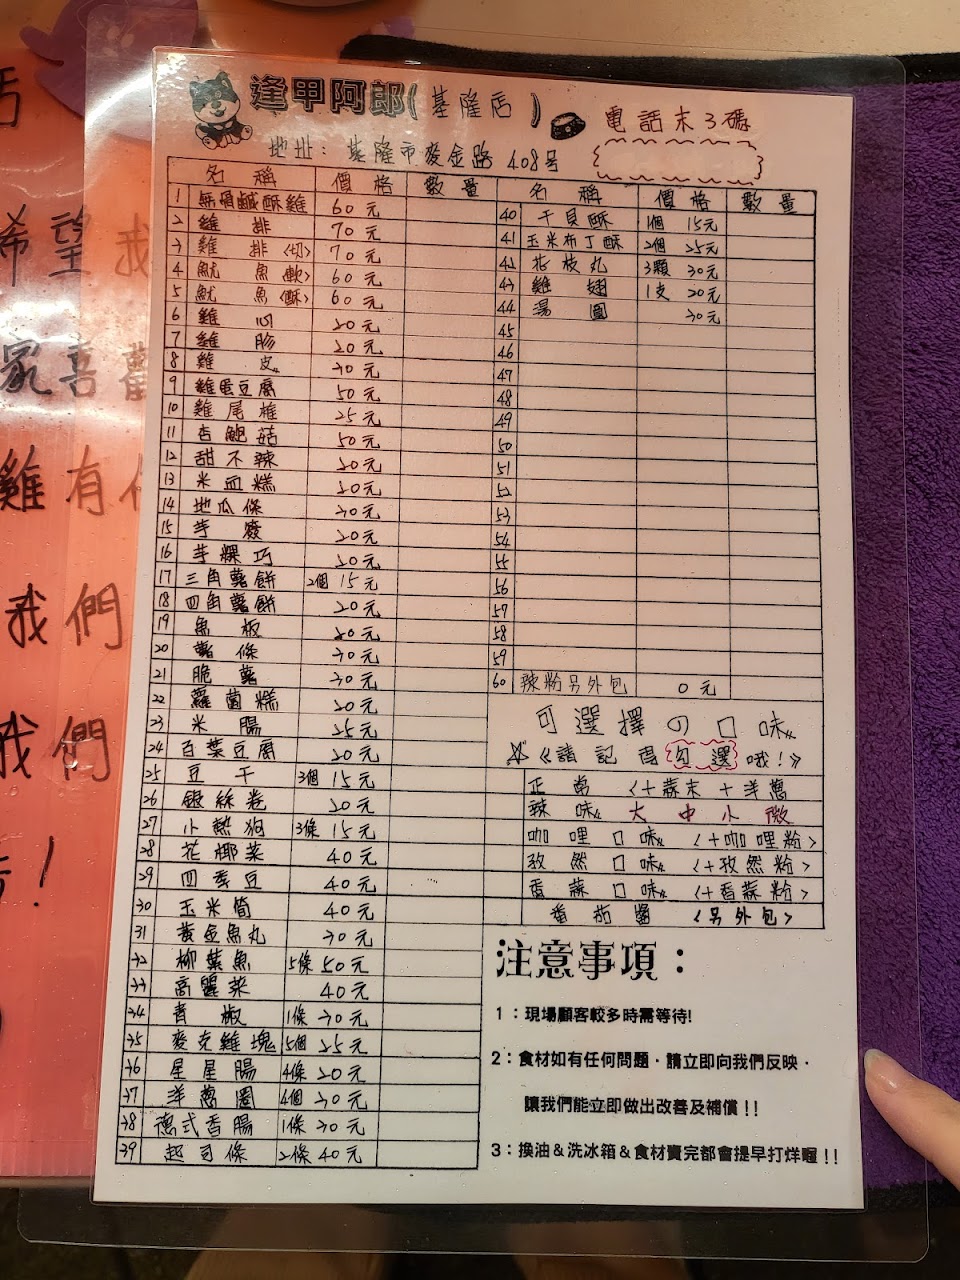 逢甲阿郎(基隆店)
電話末3碼
地址：基隆市麥金路408号
名稱 價格 數量
1 無骨鹹酥雞 60元
2 雞排 70元
3 雞排(切) 70元
4 魷魚(軟) 60元
5 魷魚(酥) 60元
6 雞心 20元
7 雞腸 20元
8 雞皮 30元
9 雞蛋豆腐 50元
10 雞尾椎 25元
11 杏鮑菇 50元
12 甜不辣 30元
13 米血糕 30元
14 地瓜條 30元
15 芋簽 20元
16 芋粿巧 20元
17 三角薯餅 2個 15元
18 四角薯餅 20元
19 魚板 20元
20 薯條 30元
21 脆薯 30元
22 蘿蔔糕 20元
23 米腸 25元
24 百葉豆腐 20元
25 豆干 3個 15元
26 銀絲卷 30元
27 小熱狗 3條 15元
28 花椰菜 40元
29 四季豆 40元
30 玉米筍 40元
31 黃金魚丸 30元
32 柳葉魚 5條 50元
33 高麗菜 40元
34 青椒 1條 30元
35 麥克雞塊 5個 25元
36 星星腸 4條 20元
37 洋蔥圈 4個 30元
38 德式香腸 1條 30元
39 起司條 2條 40元
名稱 價格 數量
40 干貝酥 1個 15元
41 玉米布丁酥 2個 25元
42 花枝丸 3顆 30元
43 雞翅 1支 20元
44 湯圓 30元
45
46
47
48
49
50
51
52
53
54
55
56
57
58
59
60 辣粉另外包 0元
可選擇の口味
☆《請記得勾選哦！》
正常 <+蒜末+洋蔥
辣味 大 中 小 微
咖哩口味 <+咖哩粉>
孜然口味 <+孜然粉>
香蒜口味 <+香蒜粉>
番茄醬 <另外包>
注意事項：
1：現場顧客較多時需等待!
2：食材如有任何問題．請立即向我們反映．
讓我們能立即做出改善及補償!!
3：換油＆洗冰箱＆食材賣完都會提早打烊喔!!
希望我
家喜歡
雞有
我們
我們
!